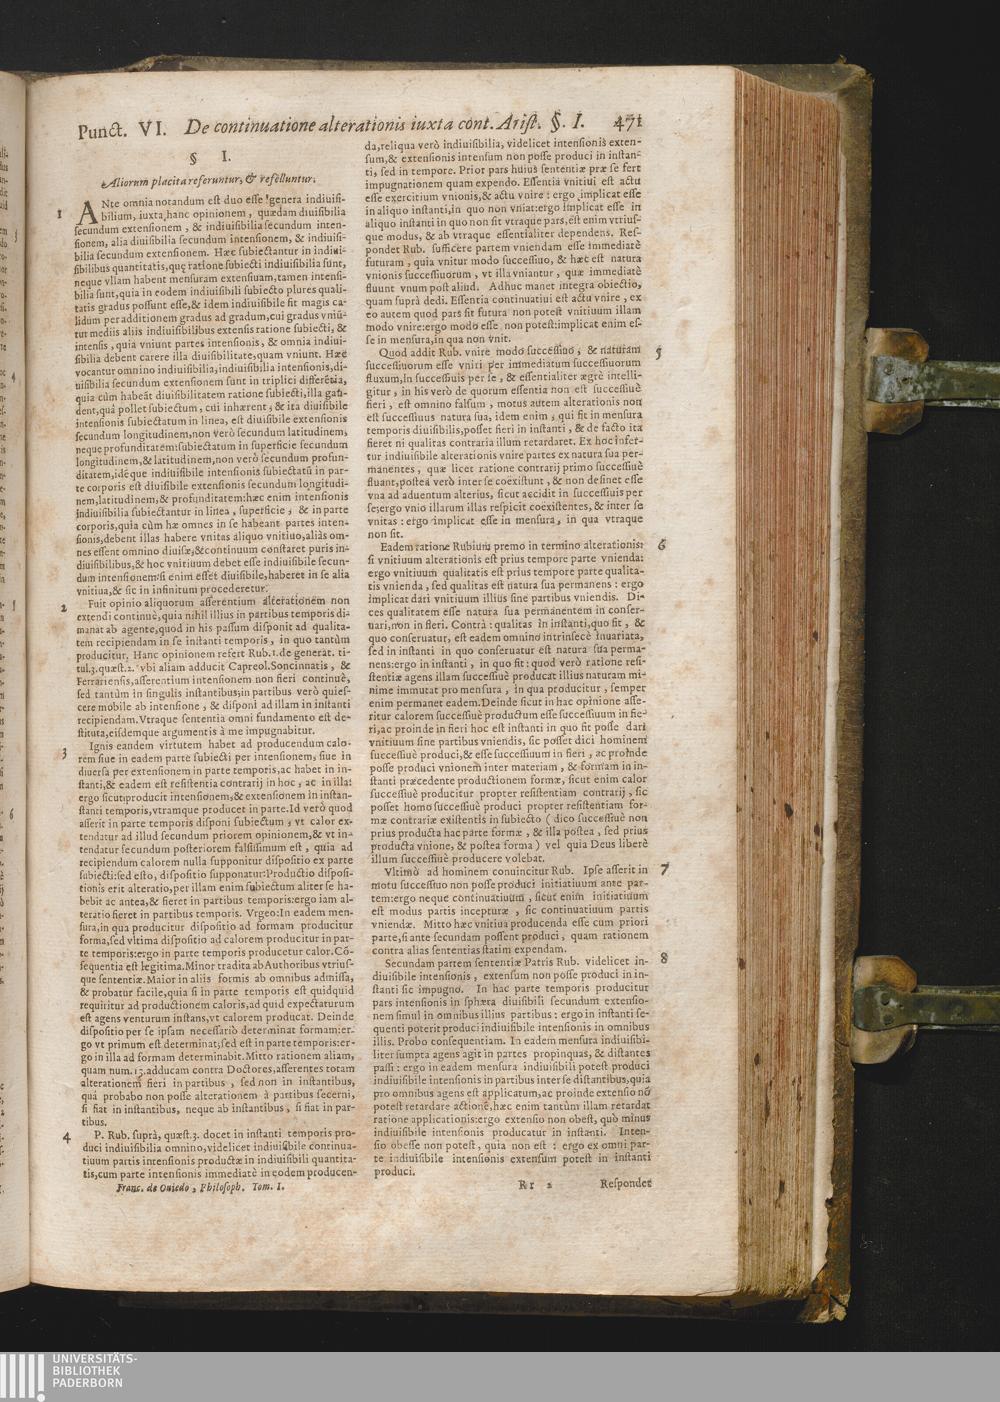 Punct. VI. De continuatione alterationis iuxta cont. Arist. §. I. 471
§ I.
Aliorum placita referuntur, & refelluntur.
1 ANte omnia notandum est duo esse genera indiuisi-
bilium, iuxta hanc opinionem, quædam diuisibilia
secundum extensionem, & indiuisibilia secundum inten-
sionem, alia diuisibilia secundum intensionem, & indiuisi-
bilia secundum extensionem. Hæc subiectantur in indiui-
sibilibus quantitatis, quę ratione subiecti indiuisibilia sunt,
neque vllam habent mensuram extensiuam, tamen intensi-
bilia sunt, quia in eodem indiuisibili subiecto plures quali-
tatis gradus possunt esse, & idem indiuisibile fit magis ca-
lidum per additionem gradus ad gradum, cui gradus vniũ-
tur mediis aliis indiuisibilibus extensis ratione subiecti, &
intensis, quia vniunt partes intensionis, & omnia indiui-
sibilia debent carere illa diuisibilitate, quam vniunt. Hæc
vocantur omnino indiuisibilia, indiuisibilia intensionis, di-
uisibilia secundum extensionem sunt in triplici differẽtia,
quia cùm habeãt diuisibilitatem ratione subiecti, illa gau-
dent, quâ pollet subiectum, cui inhærent, & ita diuisibile
intensionis subiectatum in linea, est diuisibile extensionis
secundum longitudinem, non verò secundum latitudinem,
neque profunditatem: subiectatum in superficie secundum
longitudinem, & latitudinem, non verò secundum profun-
ditatem, idẽque indiuisibile intensionis subiectatũ in par-
te corporis est diuisibile extensionis secundum longitudi-
nem, latitudinem, & profunditatem: hæc enim intensionis
indiuisibilia subiectantur in linea, superficie, & in parte
corporis, quia cùm hæ omnes in se habeant partes inten-
sionis, debent illas habere vnitas aliquo vnitiuo, aliàs om-
nes essent omnino diuisæ, & continuum constaret puris in-
diuisibilibus, & hoc vnitiuum debet esse indiuisibile secun-
dum intensionem: si enim esset diuisibile, haberet in se alia
vnitiua, & sic in infinitum procederetur.
2 Fuit opinio aliquorum asserentium alterationem non
extendi continuè, quia nihil illius in partibus temporis di-
manat ab agente, quod in his passum disponit ad qualita-
tem recipiendam in se instanti temporis, in quo tantùm
producitur. Hanc opinionem refert Rub. 1. de generat. ti-
tul. 3. quæst. 2. vbi aliam adducit Capreol. Soncinnatis, &
Ferrariensis, asserentium intensionem non fieri continuè,
sed tantùm in singulis instantibus; in partibus verò quies-
cere mobile ab intensione, & disponi ad illam in instanti
recipiendam. Vtraque sententia omni fundamento est de-
stituta, eisdemque argumentis à me impugnabitur.
3 Ignis eandem virtutem habet ad producendum calo-
rem siue in eadem parte subiecti per intensionem, siue in
diuersa per extensionem in parte temporis, ac habet in in-
stanti, & eadem est resistentia contrarij in hoc, ac in illa:
ergo sicut producit intensionem, & extensionem in instan-
stanti temporis, vtramque producet in parte. Id verò quod
asserit in parte temporis disponi subiectum, vt calor ex-
tendatur ad illud secundum priorem opinionem, & vt in-
tendatur secundum posteriorem falsissimum est, quia ad
recipiendum calorem nulla supponitur dispositio ex parte
subiecti: sed esto, dispositio supponatur: Productio disposi-
tionis erit alteratio, per illam enim subiectum aliter se ha-
bebit ac antea, & fieret in partibus temporis: ergo iam al-
teratio fieret in partibus temporis. Vrgeo: In eadem men-
sura, in qua producitur dispositio ad formam producitur
forma, sed vltima dispositio ad calorem producitur in par-
te temporis: ergo in parte temporis producetur calor. Cõ-
sequentia est legitima. Minor tradita ab Authoribus vtrius-
que sententiæ. Maior in aliis formis ab omnibus admissa,
& probatur facile, quia si in parte temporis est quidquid
requiritur ad productionem caloris, ad quid expectaturum
est agens venturum instans, vt calorem producat. Deinde
dispositio per se ipsam necessariò determinat formam: er-
go vt primum est determinat; sed est in parte temporis: er-
go in illa ad formam determinabit. Mitto rationem aliam,
quam num. 13. adducam contra Doctores, asserentes totam
alterationem fieri in partibus, sed non in instantibus,
quâ probabo non posse alterationem à partibus secerni,
si fiat in instantibus, neque ab instantibus, si fiat in par-
tibus.
4 P. Rub. suprà, quæst. 3. docet in instanti temporis pro-
duci indiuisibilia omnino, videlicet indiuisibile continua-
tiuum partis intensionis productæ in indiuisibili quantita-
tis, cum parte intensionis immediatè in eodem producen-
da, reliqua verò indiuisibilia, videlicet intensionis exten-
sum, & extensionis intensum non posse produci in instan-
ti, sed in tempore. Prior pars huius sententiæ præ se fert
impugnationem quam expendo. Essentia vnitiui est actu
esse exercitium vnionis, & actu vnire: ergo implicat esse
in aliquo instanti, in quo non vniat: ergo implicat esse in
aliquo instanti in quo non sit vtraque pars, est enim vtrius-
que modus, & ab vtraque essentialiter dependens. Res-
pondet Rub. sufficere partem vniendam esse immediatè
futuram, quia vnitur modo successiuo, & hæc est natura
vnionis successiuorum, vt illa vniantur, quæ immediatè
fluunt vnum post aliud. Adhuc manet integra obiectio,
quam suprà dedi. Essentia continuatiui est actu vnire, ex
eo autem quod pars sit futura non potest vnitiuum illam
modo vnire: ergo modo esse non potest: implicat enim es-
se in mensura, in qua non vnit.
5 Quod addit Rub. vnire modo successiuo, & naturam
successiuorum esse vniri per immediatum successiuorum
fluxum, in successiuis per se, & essentialiter ægrè intelli-
gitur, in his verò de quorum essentia non est successiuè
fieri, est omnino falsum, motus autem alterationis non
est successiuus natura sua, idem enim, qui fit in mensura
temporis diuisibilis, posset fieri in instanti, & de facto ita
fieret ni qualitas contraria illum retardaret. Ex hoc infer-
tur indiuisibile alterationis vnire partes ex natura sua per-
manentes, quæ licet ratione contrarij primo successiuè
fluant, postea verò inter se coëxistunt, & non desinet esse
vna ad aduentum alterius, sicut accidit in successiuis per
se; ergo vnio illarum illas respicit coëxistentes, & inter se
vnitas: ergo implicat esse in mensura, in qua vtraque
non sit.
6 Eadem ratione Rubium premo in termino alterationis:
si vnitiuum alterationis est prius tempore parte vnienda:
ergo vnitiuum qualitatis est prius tempore parte qualita-
tis vnienda, sed qualitas est natura sua permanens: ergo
implicat dari vnitiuum illius sine partibus vniendis. Di-
ces qualitatem esse natura sua permanentem in conser-
uari, non in fieri. Contrà: qualitas in instanti, quo fit, &
quo conseruatur, est eadem omnino intrinsecè inuariata,
sed in instanti in quo conseruatur est natura sua perma-
nens: ergo in instanti, in quo fit: quod verò ratione resi-
stentiæ agens illam successiuè producat illius naturam mi-
nime immutat pro mensura, in qua producitur, semper
enim permanet eadem. Deinde sicut in hac opinione asse-
ritur calorem successiuè productum esse successiuum in fie-
ri, ac proinde in fieri hoc est instanti in quo fit posse dari
vnitiuum sine partibus vniendis, sic posset dici hominem
successiuè produci, & esse successiuum in fieri, ac proinde
posse produci vnionem inter materiam, & formam in in-
stanti præcedente productionem formæ, sicut enim calor
successiuè producitur propter resistentiam contrarij, sic
posset homo successiuè produci propter resistentiam for-
mæ contrariæ existentis in subiecto (dico successiuè non
prius producta hac parte formæ, & illa postea, sed prius
producta vnione, & postea forma) vel quia Deus liberè
illum successiuè producere volebat.
7 Vltimò ad hominem conuincitur Rub. Ipse asserit in
motu successiuo non posse produci initiatiuum ante par-
tem: ergo neque continuatiuum, sicut enim initiatiuum
est modus partis incepturæ, sic continuatiuum partis
vniendæ. Mitto hæc vnitiua producenda esse cum priori
parte, si ante secundam possent produci, quam rationem
contra alias sententias statim expendam.
8 Secundam partem sententiæ Patris Rub. videlicet in-
diuisibile intensionis, extensum non posse produci in in-
stanti sic impugno. In hac parte temporis producitur
pars intensionis in sphæra diuisibili secundum extensio-
nem simul in omnibus illius partibus: ergo in instanti se-
quenti poterit produci indiuisibile intensionis in omnibus
illis. Probo consequentiam. In eadem mensura indiuisibi-
liter sumpta agens agit in partes propinquas, & distantes
passi: ergo in eadem mensura indiuisibili potest produci
indiuisibile intensionis in partibus inter se distantibus, quia
pro omnibus agens est applicatum, ac proinde extensio nõ
potest retardare actionẽ, hæc enim tantùm illam retardat
ratione applicationis: ergo extensio non obest, quò minus
indiuisibile intensionis producatur in instanti. Inten-
sio obesse non potest, quia non est: ergo ex omni par-
te indiuisibile intensionis extensum potest in instanti
produci.
Franc. de Ouiedo, Philosoph. Tom. I. Rr 2 Respondet
UNIVERSITÄTS-
BIBLIOTHEK
PADERBORN